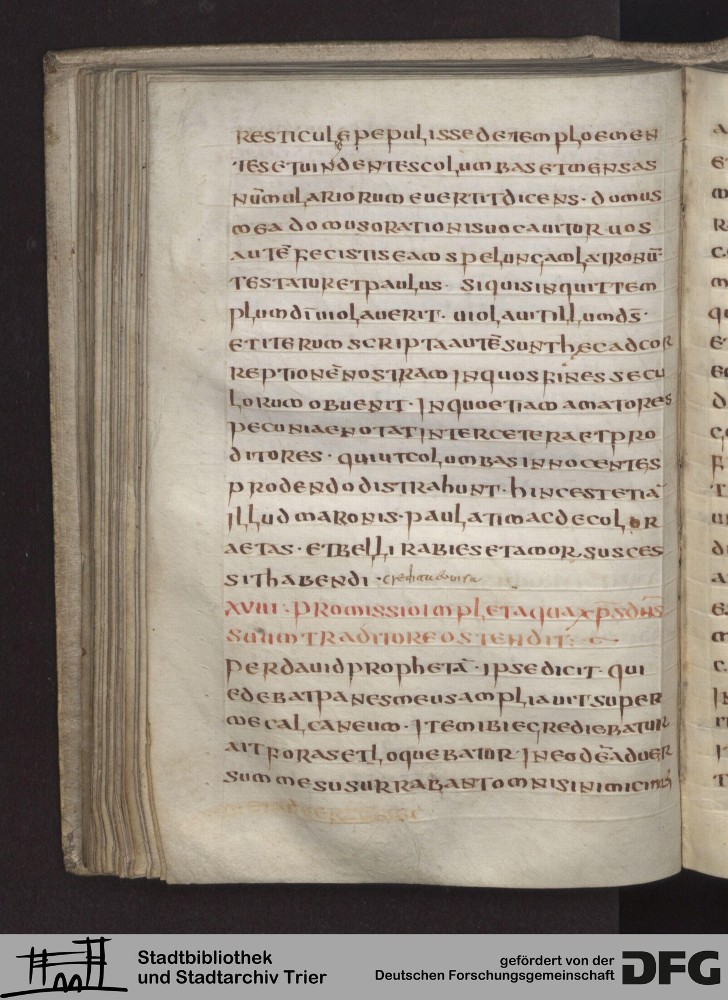 resticule pepulisse de templo emen
tes et uindentes columbas et mensas
nūmulariorum euertit dicens · domus
mea domus orationis uocauitur uos
autē fecistis eam speluncam latronū
testatur et paulus · si quis inquit tem
plum dī uiolauerit · uiolauit illum ds̄ ·
et iterum scripta autē sunt hec ad cor
reptionē nostram in quos fines secu
lorum obuenit · in quo etiam amatores
pecuniae notat inter cetera et pro
ditores · qui ut columbas innocentes
prodendo distrahunt · hinc est etiā
illud maronis · paulatim ac decolor
aetas · et belli rabies et amor susces
sit habendi ·
XVIII · promissio impleta qua xp̄s dn̄s
suum traditore ostendit :
per dauid prophetā · ipse dicit · qui
edebat panes meus ampliauit super
me calcaneum · item ibi egrediebatur
ait foras et loquebatur · in eodē aduer
sum me susurrabant omnis inimici mei
Stadtbibliothek
und Stadtarchiv Trier
gefördert von der
Deutschen Forschungsgemeinschaft
DFG